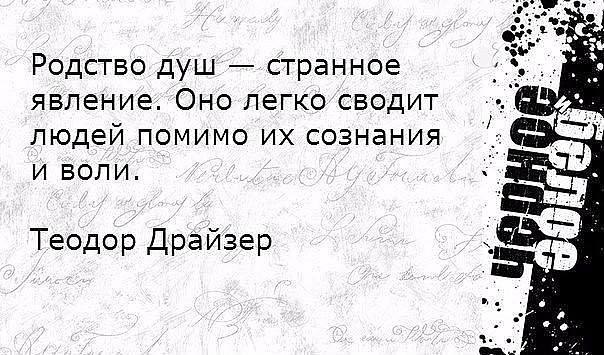 Родство душ — странное
явление. Оно легко сводит
людей помимо их сознания
и воли.
Теодор Драйзер
черное
и белое